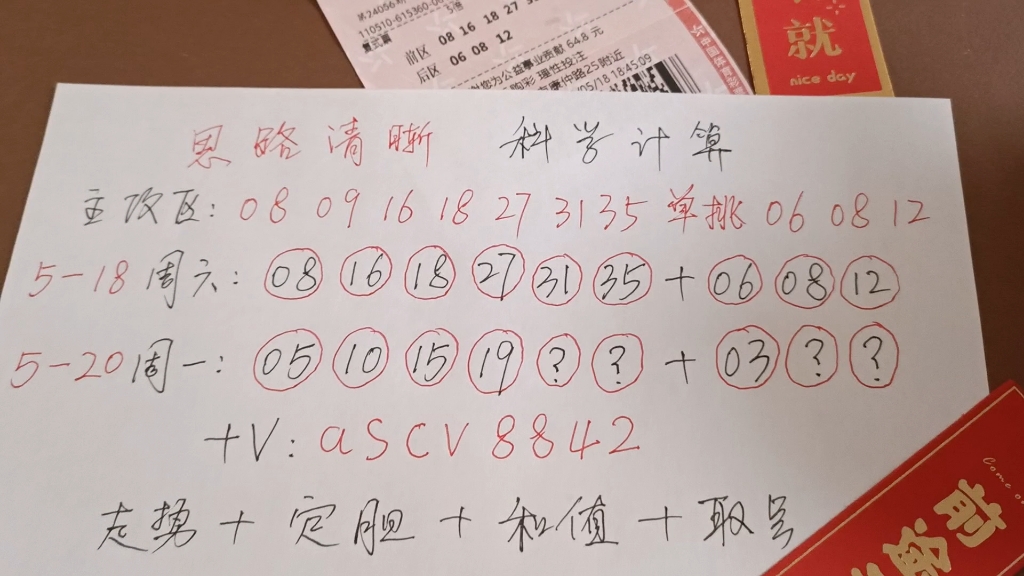 110510-615360-00
前区 08 16 18 27
后区 06 08 12
您为公益事业贡献 64.8 元
18 18:45:09
就
nice day
思路清晰 科学计算
主攻区: 08 09 16 18 27 31 35 单挑 06 08 12
5-18 周六: 08 16 18 27 31 35 + 06 08 12
5-20 周一: 05 10 15 19 ? ? + 03 ? ?
+V: aSCV8842
走势 + 定胆 + 和值 + 取号
前